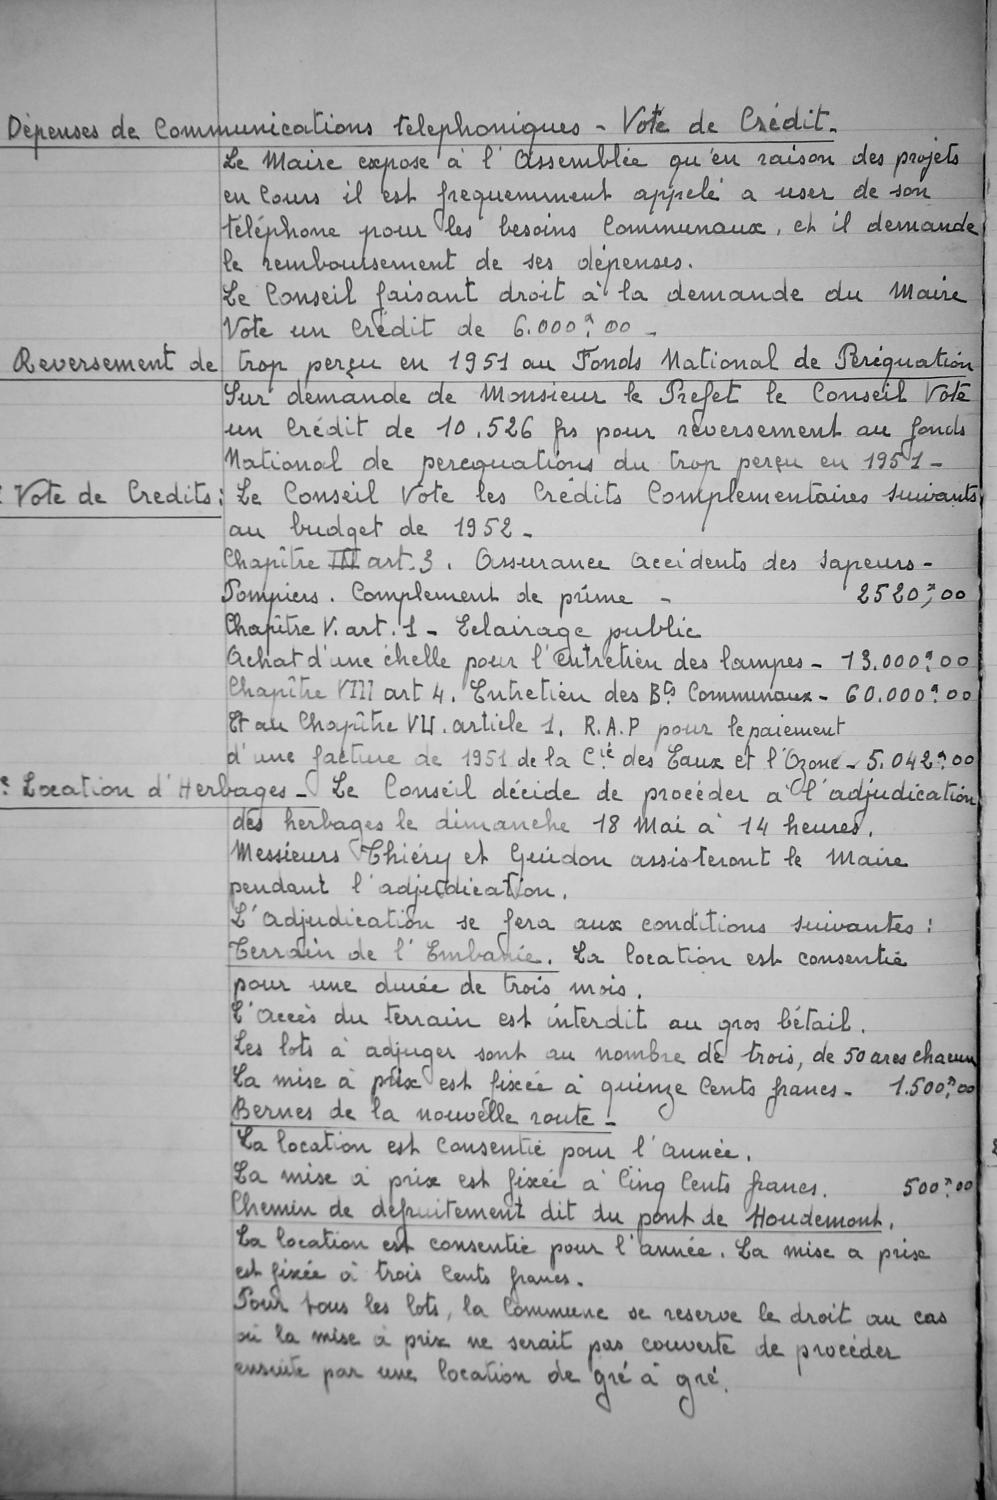 Dépenses de Communications telephoniques - Vote de Crédit.
Le Maire expose à l'Assemblée qu'en raison des projets
en Cours il est frequemment appelé a user de son
téléphone pour les besoins Communaux, et il demande
le remboursement de ses dépenses.
Le Conseil faisant droit à la demande du Maire
Vote un Crédit de 6.000f,00 -
Reversement de trop perçu en 1951 au Fonds National de Péréquation
Sur demande de Monsieur le Prefet le Conseil Vote
un Crédit de 10.526 frs pour reversement au fonds
National de perequations du trop perçu en 1951 -
Vote de Credits: Le Conseil Vote les Crédits Complementaires suivants
au budget de 1952 -
Chapître III art. 3. Assurance Accidents des Sapeurs-
Pompiers. Complement de prime - 2520f,00
Chapître V. art. 1 - Eclairage public
Achat d'une échelle pour l'entretien des lampes - 13.000f,00
Chapître VIII art 4. Entretien des Bts Communaux - 60.000f,00
Et au Chapître VII. article 1. R.A.P pour le paiement
d'une facture de 1951 de la Cie des Eaux et l'Ozone - 5.042f,00
Location d'Herbages - Le Conseil décide de procéder a l'adjudication
des herbages le dimanche 18 Mai à 14 heures.
Messieurs Thiéry et Guidon assisteront le Maire
pendant l'adjudication.
L'adjudication se fera aux conditions suivantes:
Terrain de l'Embanie. La location est consentie
pour une durée de trois mois.
L'accès du terrain est interdit au gros bétail.
Les lots à adjuger sont au nombre de trois, de 50 ares chacun
La mise à prix est fixée à quinze Cents francs - 1.500f,00
Bernes de la nouvelle route -
La location est Consentie pour l'année.
La mise à prix est fixée à Cinq Cents francs. 500f,00
Chemin de defruitement dit du pont de Houdemont.
La location est consentie pour l'année. La mise a prix
est fixée à trois Cents francs.
Pour tous les lots, la Commune se reserve le droit au cas
où la mise à prix ne serait pas couverte de procéder
ensuite par une location de gré à gré.